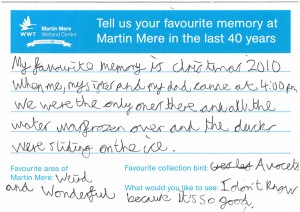 WWT
Martin Mere
Wetland Centre
Tell us your favourite memory at
Martin Mere in the last 40 years
My favourite memory is christmas 2010
When me, my sister and my dad came at 4:00pm
we were the only ones there and all the
water was frozen over and the ducks
were sliding on the ice.
Favourite area of
Martin Mere: Weird
and Wonderful
Favourite collection bird: Avocets
What would you like to see: I don't know
because It's so good.